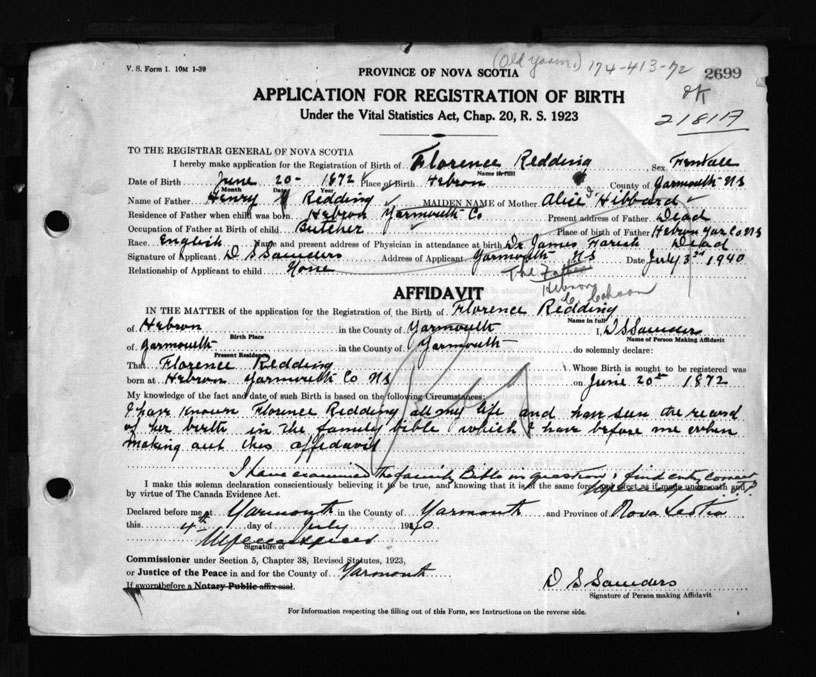 (Old Yarm.) 174-413-72 2699
V. S. Form 1. 10M 1-39
PROVINCE OF NOVA SCOTIA
OK
APPLICATION FOR REGISTRATION OF BIRTH
2181A
Under the Vital Statistics Act, Chap. 20, R. S. 1923
TO THE REGISTRAR GENERAL OF NOVA SCOTIA
I hereby make application for the Registration of Birth of Florence Redding Sex Female
Name in full
Date of Birth June 20- 1872 Place of Birth Hebron County of Yarmouth NS
Month Date Year
Name of Father Henry Redding MAIDEN NAME of Mother Alice Hibbard
Residence of Father when child was born Hebron Yarmouth Co Present address of Father Dead
Occupation of Father at Birth of Child Butcher Place of birth of Father Hebron Yar Co NS
Race English Name and present address of Physician in attendance at birth Dr James Farish Dead
Signature of Applicant D S Saunders Address of Applicant Yarmouth NS Date July 3rd 1940
Relationship of Applicant to child None The Father
Hebron
AFFIDAVIT
IN THE MATTER of the application for the Registration of the Birth of Florence Redding
Name in full
of Hebron in the County of Yarmouth I, D S Saunders
Birth Place Name of Person Making Affidavit
of Yarmouth in the County of Yarmouth do solemnly declare:
Present Residence
That Florence Redding Whose Birth is sought to be registered was
born at Hebron Yarmouth Co NS on June 20th 1872
My knowledge of the fact and date of such Birth is based on the following Circumstances:
I have known Florence Redding all my life and have seen the record
of her birth in the family bible which I have before me when
making out this affidavit
I have examined the family Bible in question & find entry correct
I make this solemn declaration conscientiously believing it to be true, and knowing that it is of the same force and effect as if made under oath and
by virtue of The Canada Evidence Act.
Declared before me at Yarmouth in the County of Yarmouth and Province of Nova Scotia
this 4th day of July 1940
Signature of
Commissioner under Section 5, Chapter 38, Revised Statutes, 1923,
or Justice of the Peace in and for the County of Yarmouth
If sworn before a Notary Public affix seal.
D S Saunders
Signature of Person making Affidavit
For Information respecting the filling out of this Form, see Instructions on the reverse side.